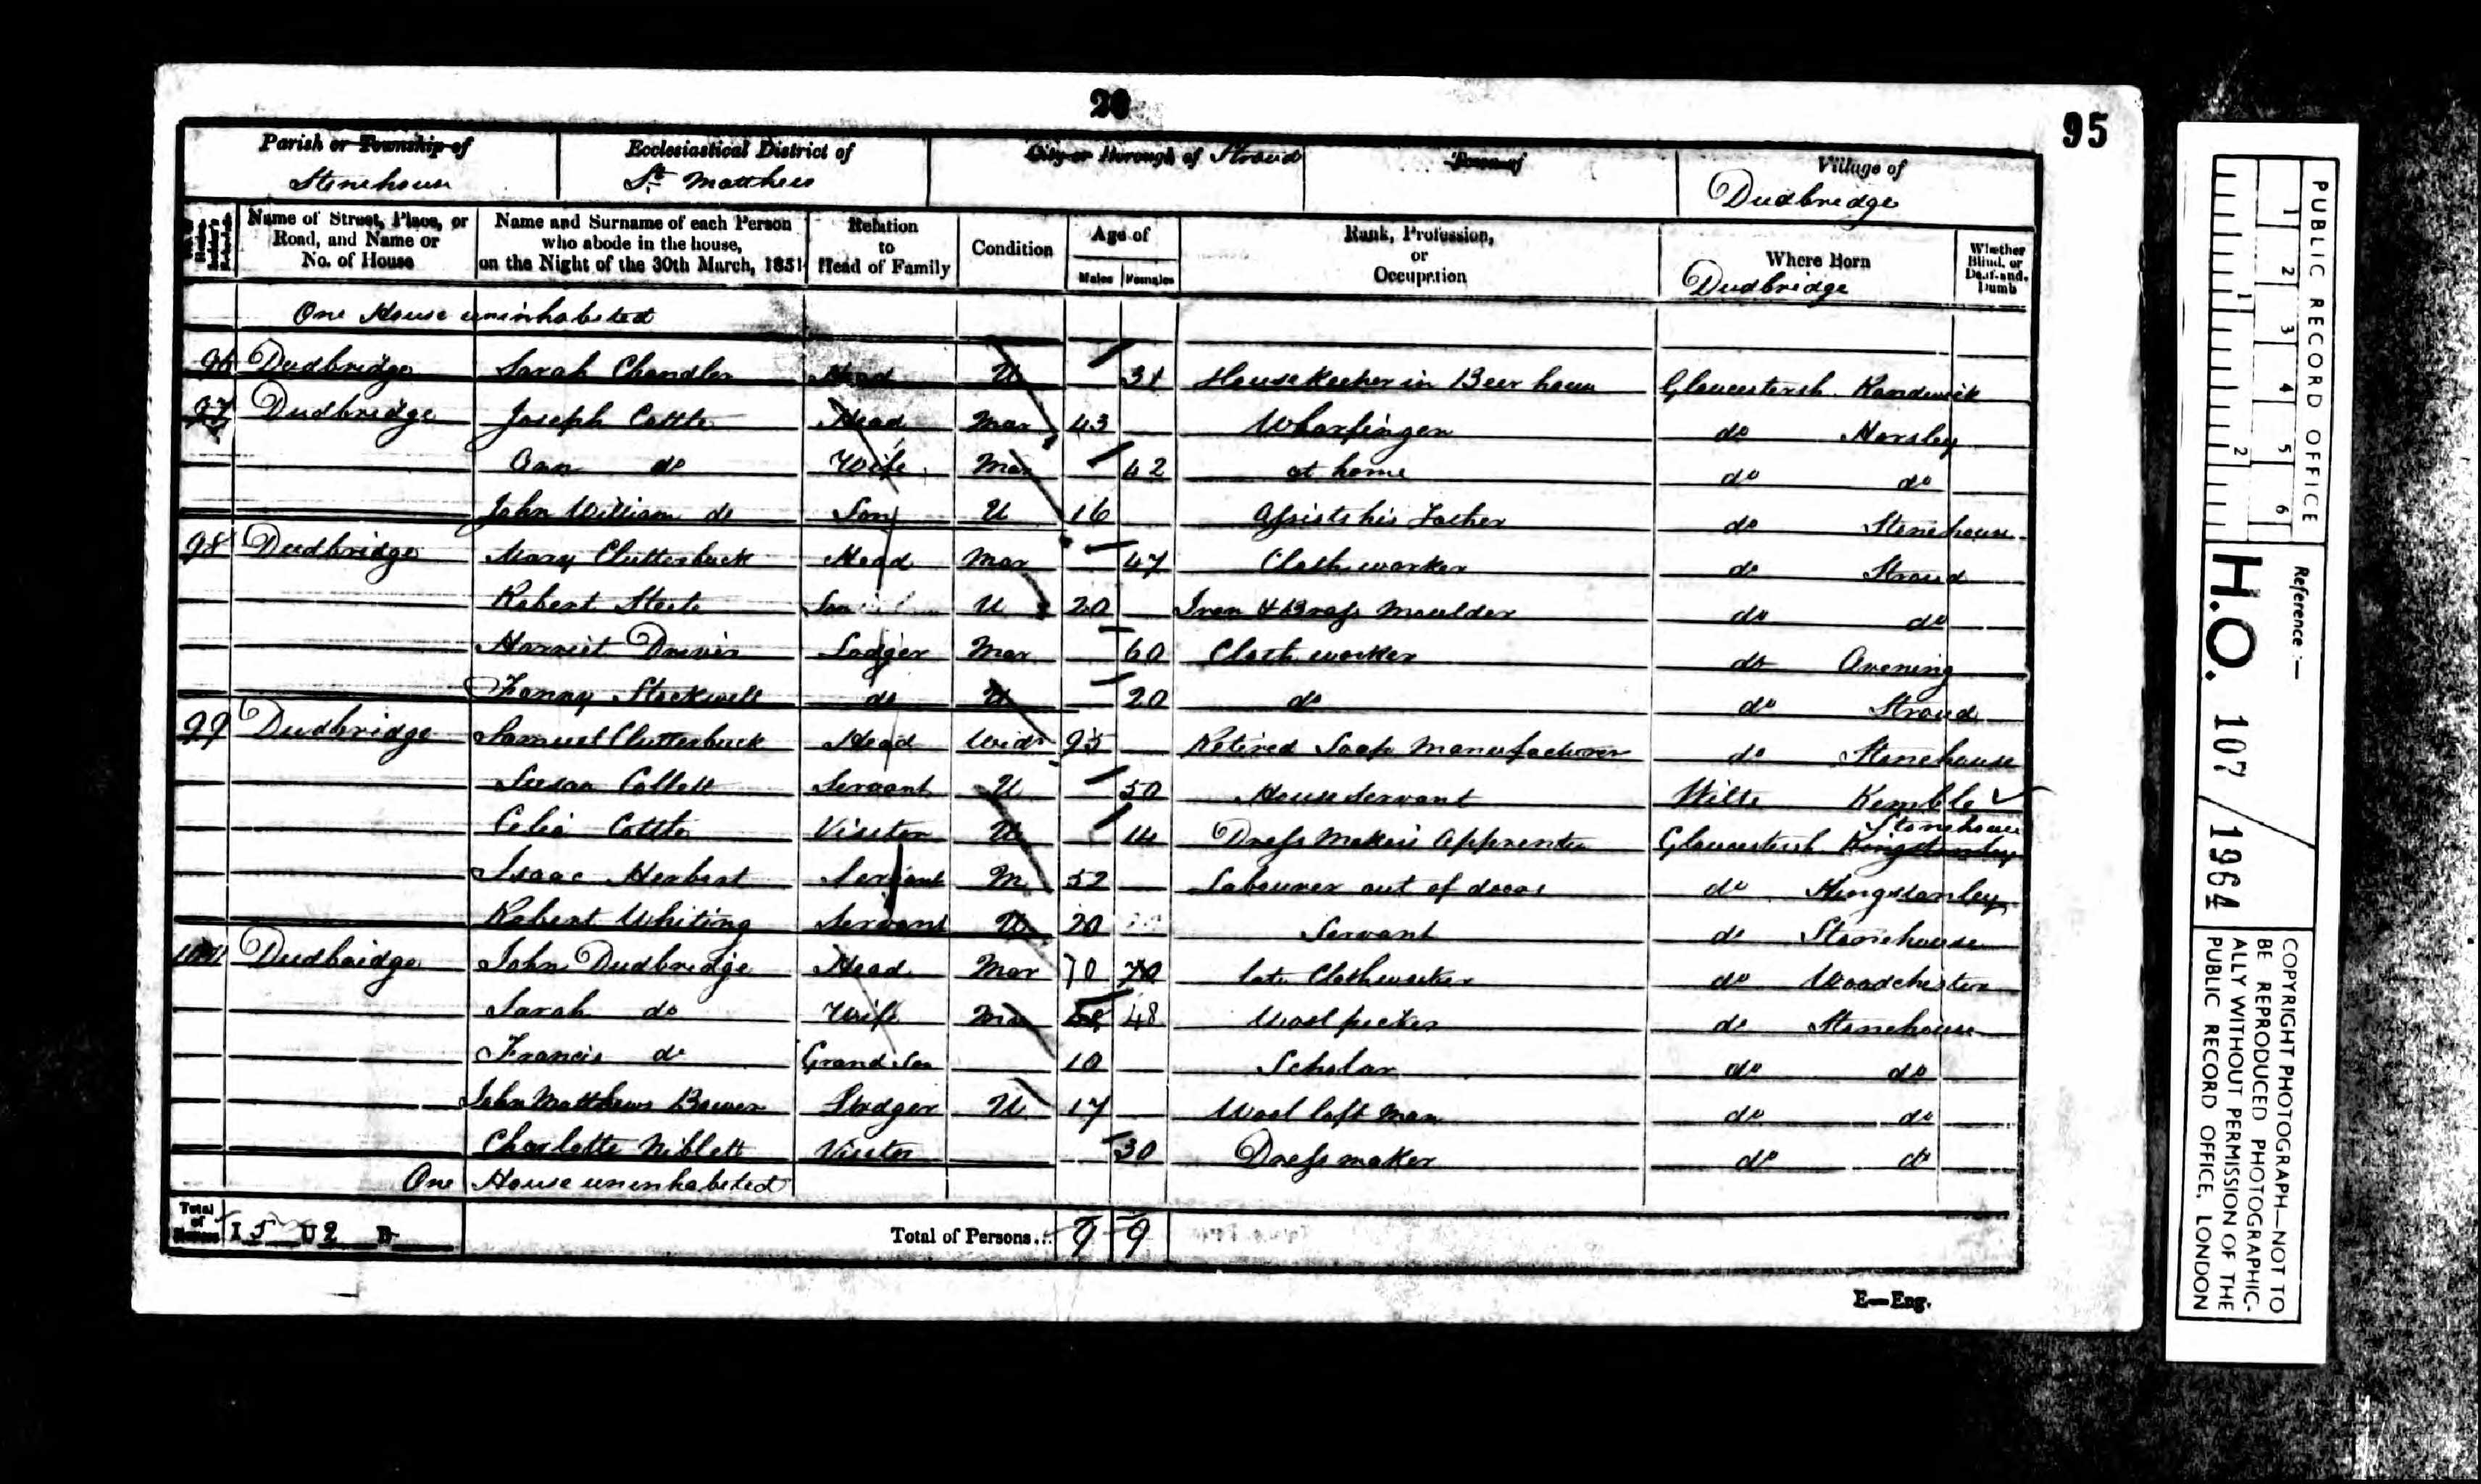 20
95
Parish or Township of Stonehouse
Ecclesiastical District of St Matthews
City or Borough of Stroud
Town of
Village of Dudbridge
Name of Street, Place, or Road, and Name or No. of House
Name and Surname of each Person who abode in the house, on the Night of the 30th March, 1851
Relation to Head of Family
Condition
Age of
Males Females
Rank, Profession, or Occupation
Where Born
Dudbridge
Whether Blind, or Deaf-and-Dumb
One House uninhabited
96 Dudbridge Sarah Chandler Head U 31 House Keeper in Beer house Gloucestersh Randwick
97 Dudbridge Joseph Cottle Head Mar 43 Wharfinger do Horsley
Ann do Wife Mar 42 at home do do
John William do Son U 16 Assists his Father do Stonehouse
98 Dudbridge Mary Clutterbuck Head Mar 47 Cloth worker do Stroud
Robert Steele Son U 20 Iron & Brass Moulder do do
Harriet Lodger Mar 60 Cloth worker do Avening
Fanny Stockwell do U 20 do do Stroud
99 Dudbridge Samuel Clutterbuck Head Widr 95 Retired Soap Manufacturer do Stonehouse
Susan Collett Servant U 50 House Servant Wilts Kemble
Celia Cottle Visitor U 14 Dress Maker's Apprentice Gloucestersh Kingstanley Stonehouse
Isaac Herbert Servant M 52 Labourer out of doors do Kingstanley
Robert Whiting Servant U 20 Servant do Stonehouse
100 Dudbridge John Dudbridge Head Mar 70 70 late Clothworker do Woodchester
Sarah do Wife Mar 48 48 Wool picker do Stonehouse
Francis do Grandson 10 Scholar do do
John Matthews Bower Lodger U 17 Wool loft man do do
Charlotte Niblett Visitor 30 Dress maker do do
One House uninhabited
Total of Houses I 5 U 2 B
Total of Persons... 9 9
E—Eng.
PUBLIC RECORD OFFICE
1 2 3 4 5 6
1 2
Reference :—
H.O. 107 / 1964
COPYRIGHT PHOTOGRAPH—NOT TO
BE REPRODUCED PHOTOGRAPHIC-
ALLY WITHOUT PERMISSION OF THE
PUBLIC RECORD OFFICE, LONDON